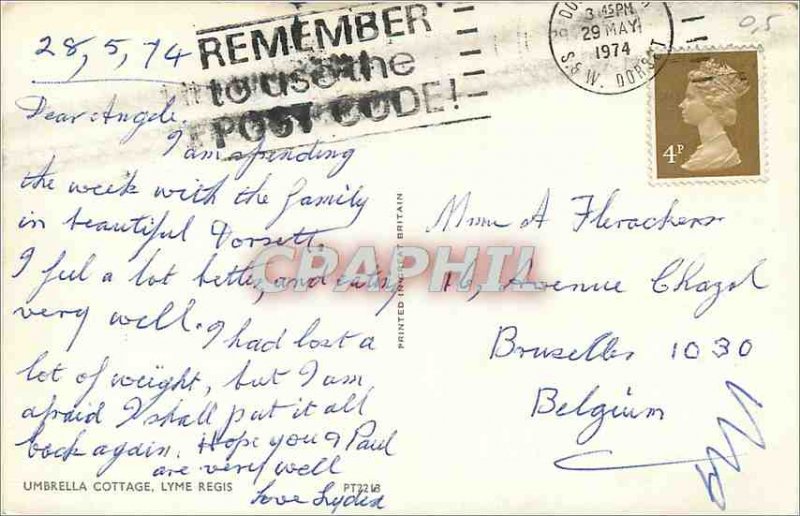 28, 5, 74
REMEMBER
to use the
POST CODE!
3 45PM
29 MAY
1974
S. & W. DORSET
4P
0,5
Dear Angele.
I am spending
the week with the family
in beautiful Dorsett.
I feel a lot better, and eating
very well. I had lost a
lot of weight, but I am
afraid I shall put it all
back again. Hope you & Paul
are very well
Love Lydia
UMBRELLA COTTAGE, LYME REGIS
PT2213
PRINTED IN GREAT BRITAIN
CPAPHIL
Mme A Flerackers
Avenue Chazal
Bruxelles 1030
Belgium